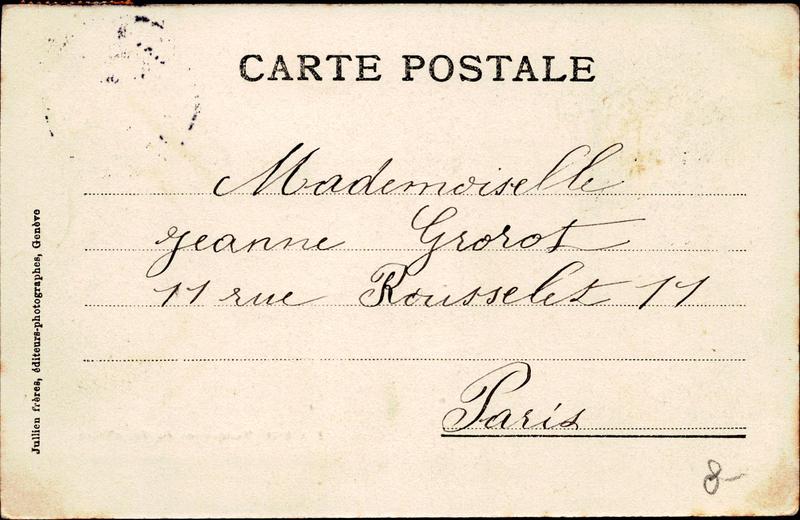 CARTE POSTALE
Mademoiselle
Jeanne Grorot
11 rue Rousselet 11
Paris
Jullien frères, éditeurs-photographes, Genève
8-